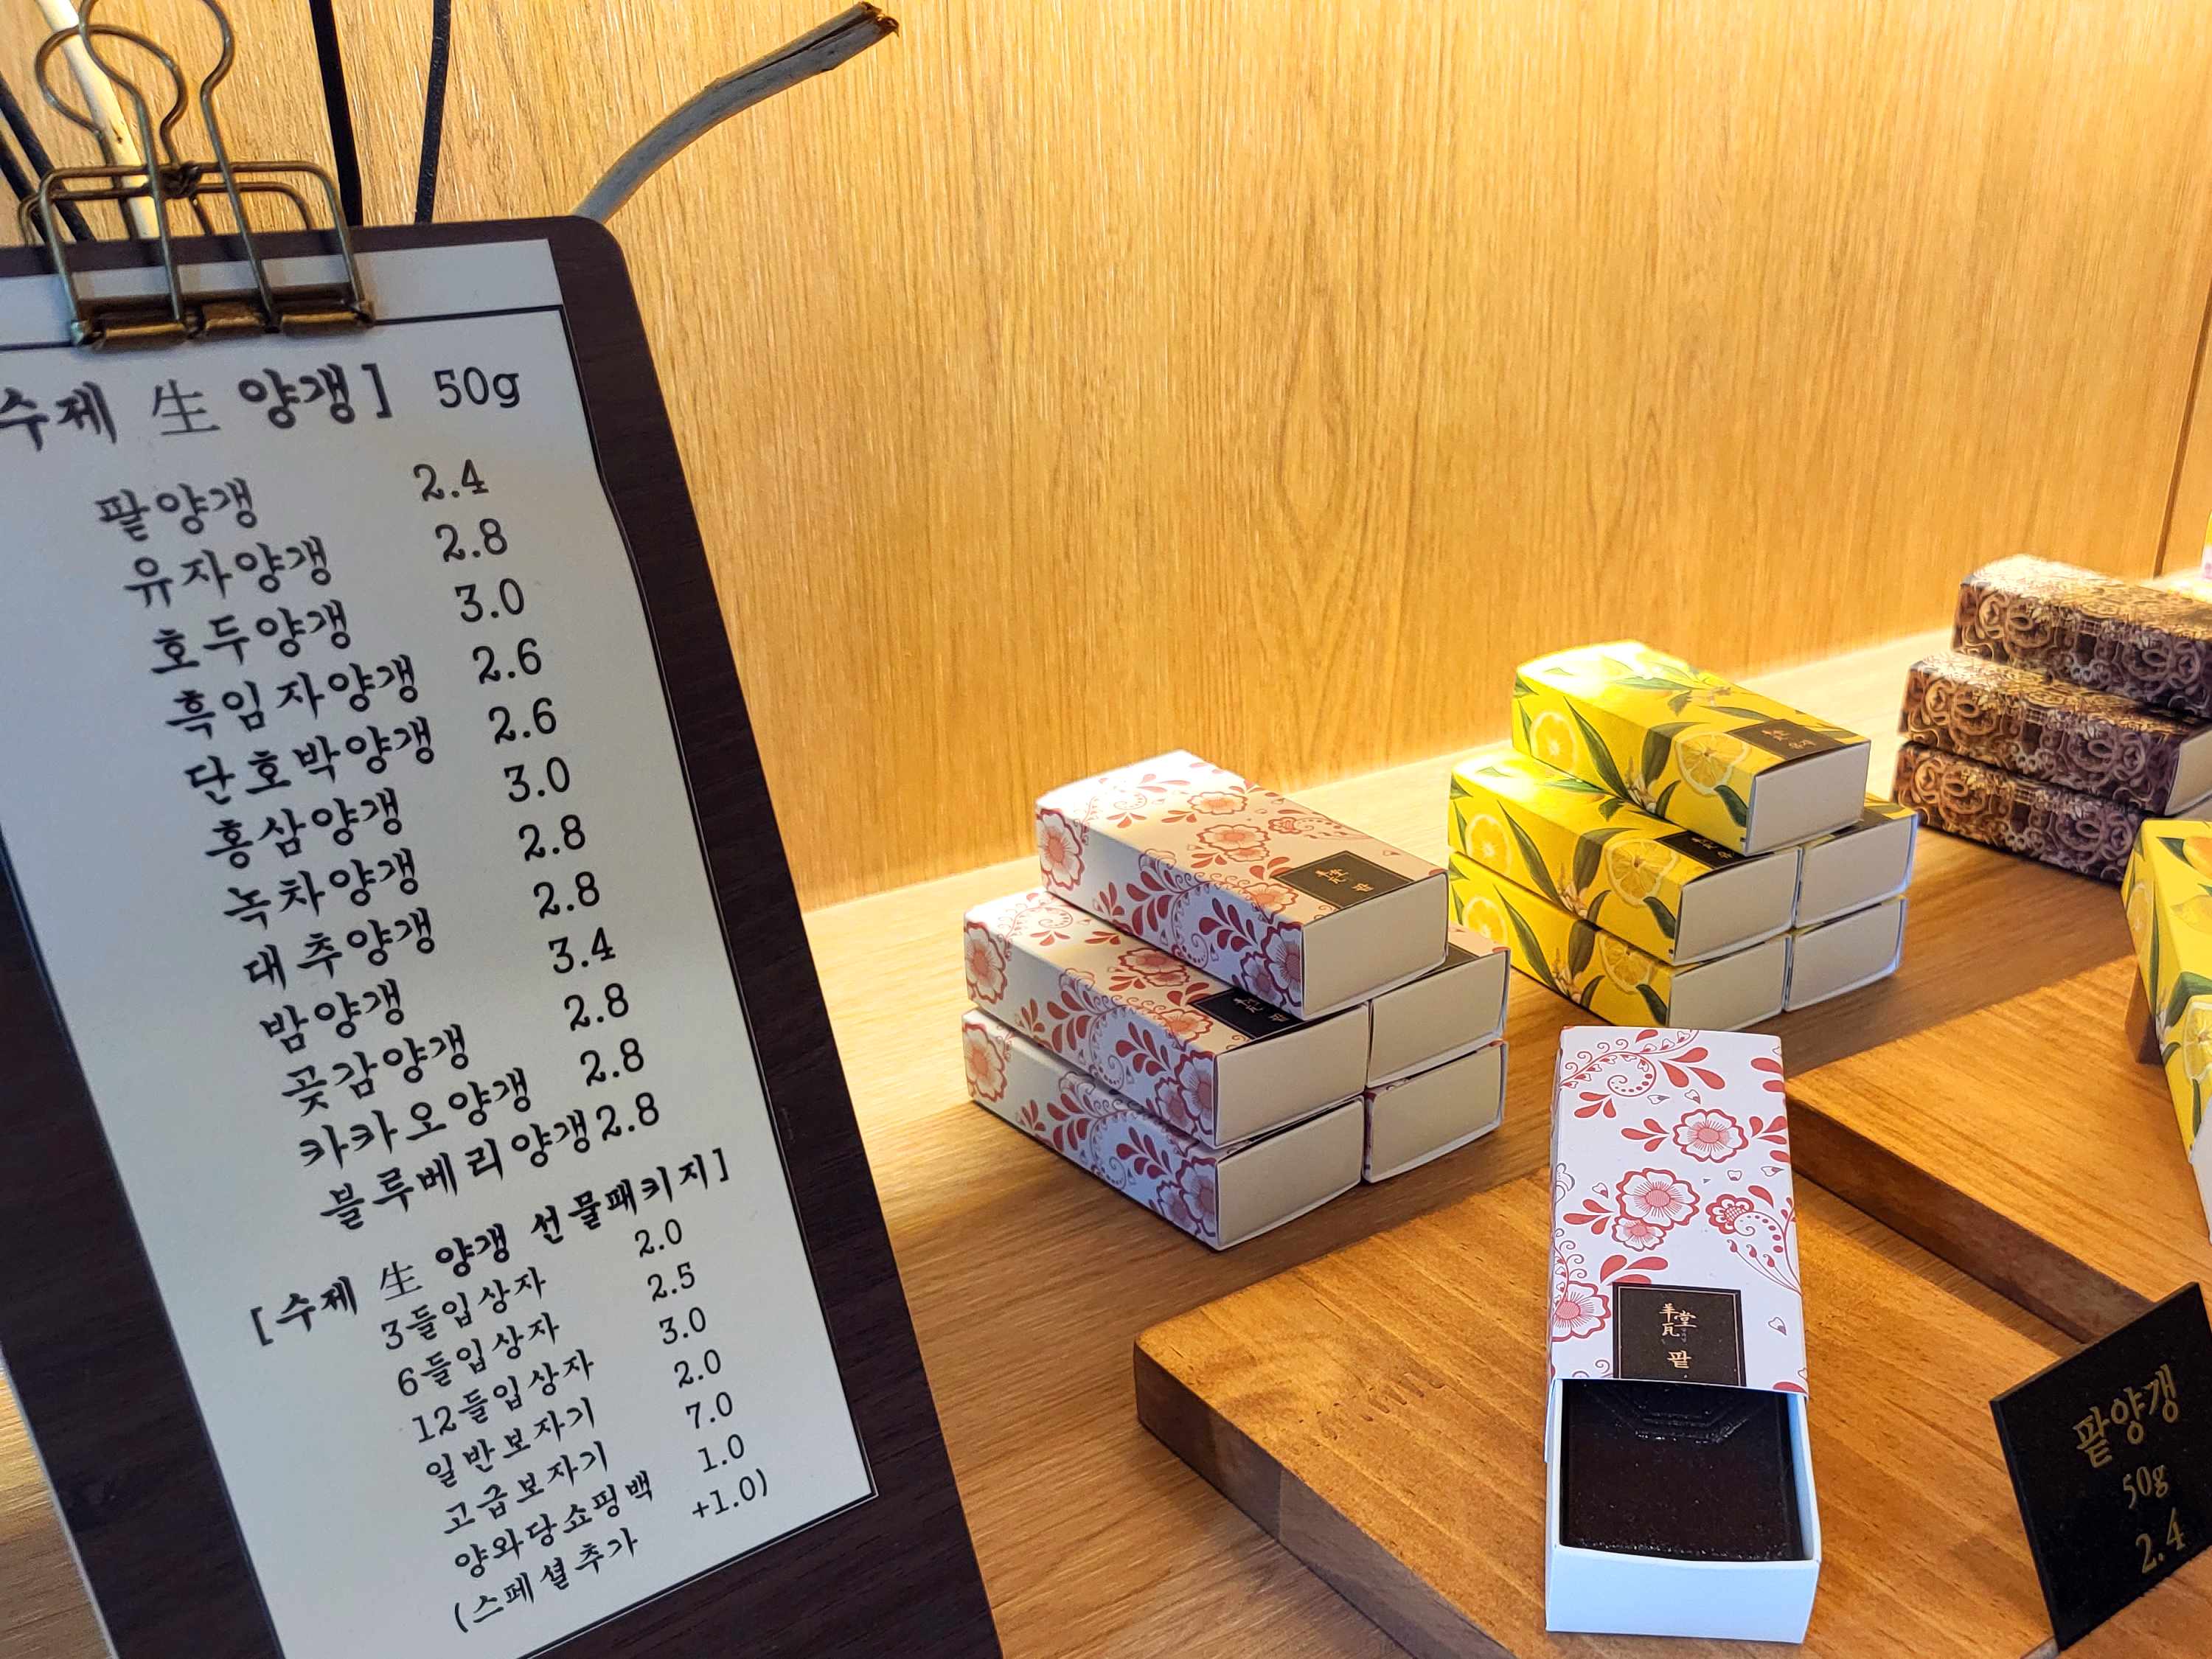 수제 生 양갱] 50g
팥양갱 2.4
유자양갱 2.8
호두양갱 3.0
흑임자양갱 2.6
단호박양갱 2.6
홍삼양갱 3.0
녹차양갱 2.8
대추양갱 2.8
밤양갱 3.4
곶감양갱 2.8
카카오양갱 2.8
블루베리양갱 2.8
[수제 生 양갱 선물패키지]
3들입상자 2.0
6들입상자 2.5
12들입상자 3.0
일반보자기 2.0
고급보자기 7.0
양와당쇼핑백 1.0
(스페셜추가 +1.0)
羊瓦堂
팥
팥양갱
50g
2.4